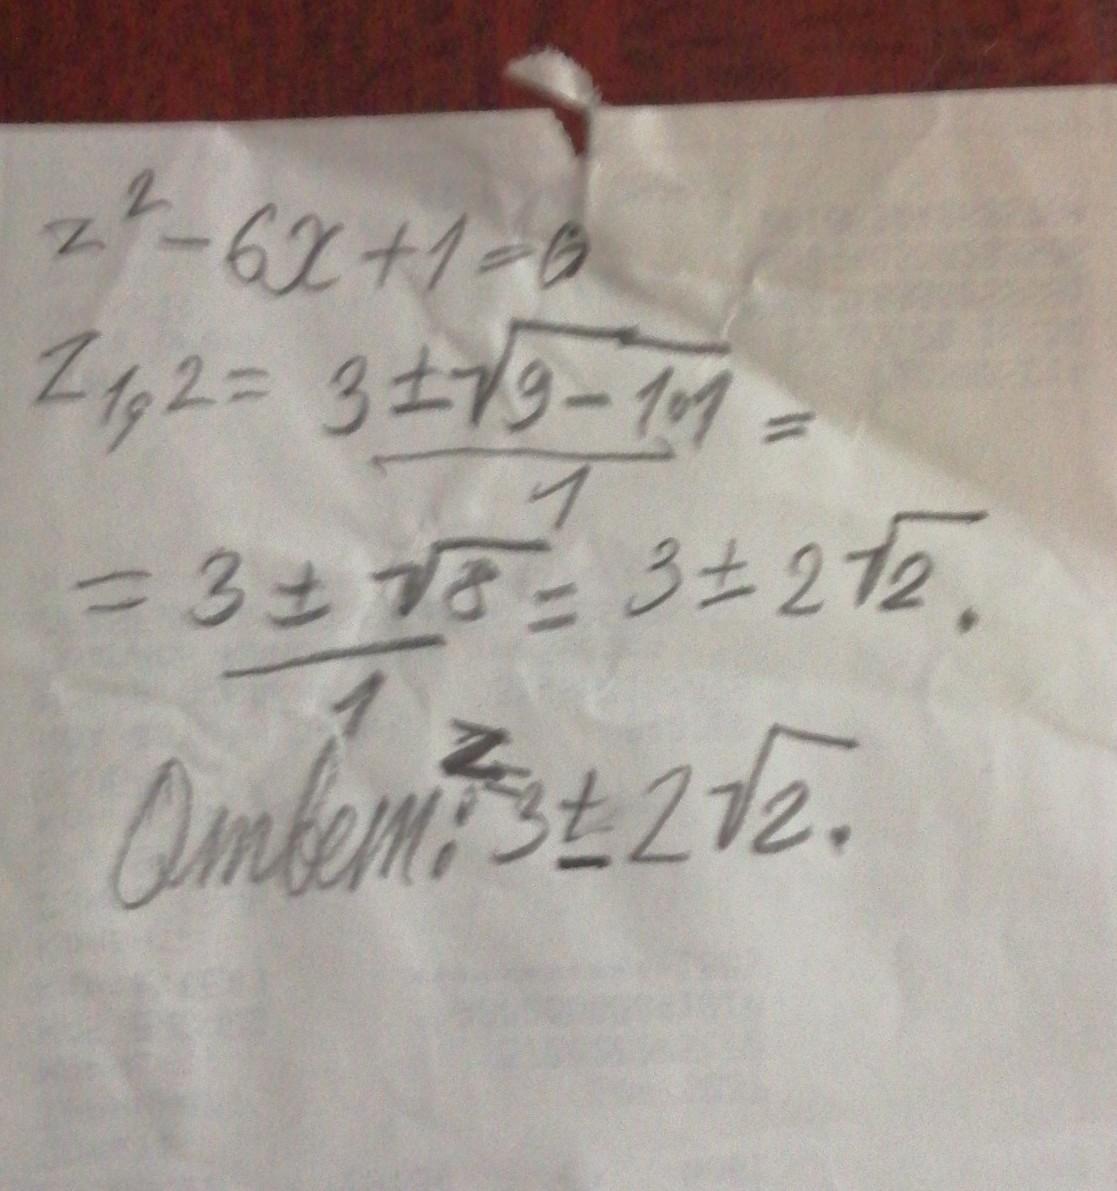 z² - 6x + 1 = 0
z₁,₂ = (3 ± √(9 - 1·1))/1 =
= (3 ± √8)/1 = 3 ± 2√2.
Ответ: z = 3 ± 2√2.